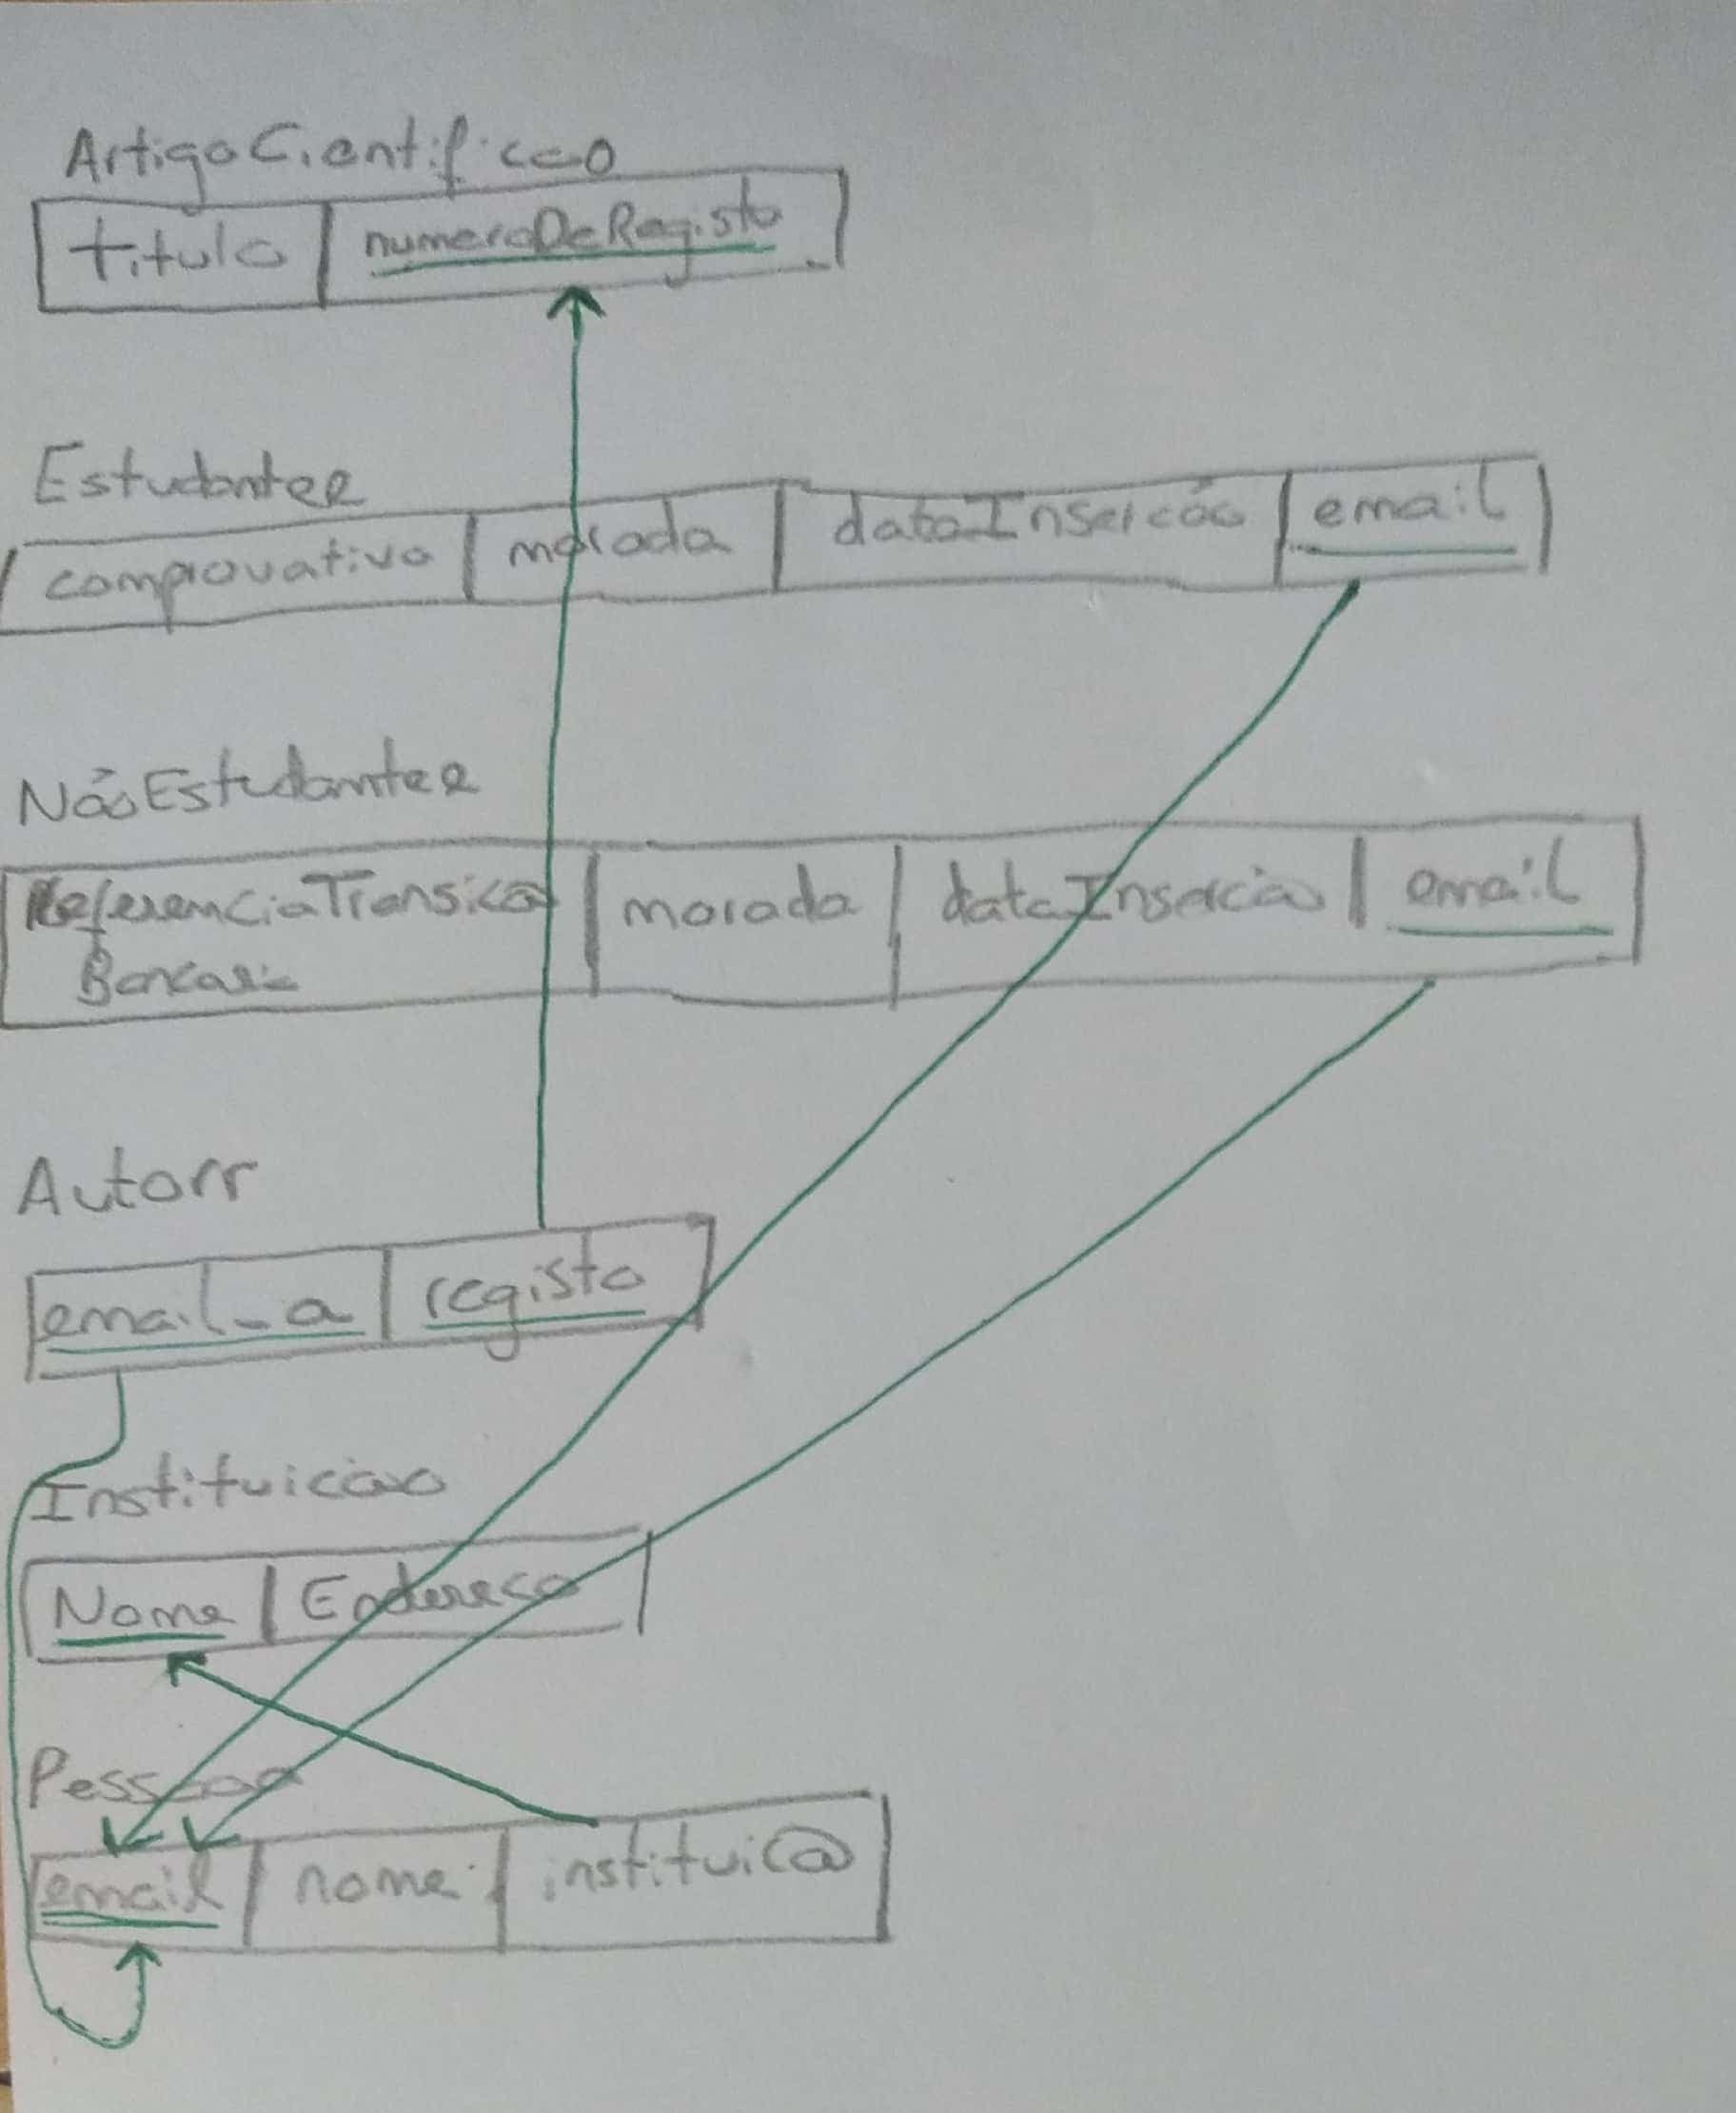 ArtigoCientificoo
titulo numeroDeRegisto
Estudantee
comprovativo morada dataInsercão email
NãoEstudantee
ReferenciaTransicão morada dataInsercão email
Bancaria
Autorr
email_a registo
Instituicaoo
Nome Endereco
Pessoaa
email nome instituicao